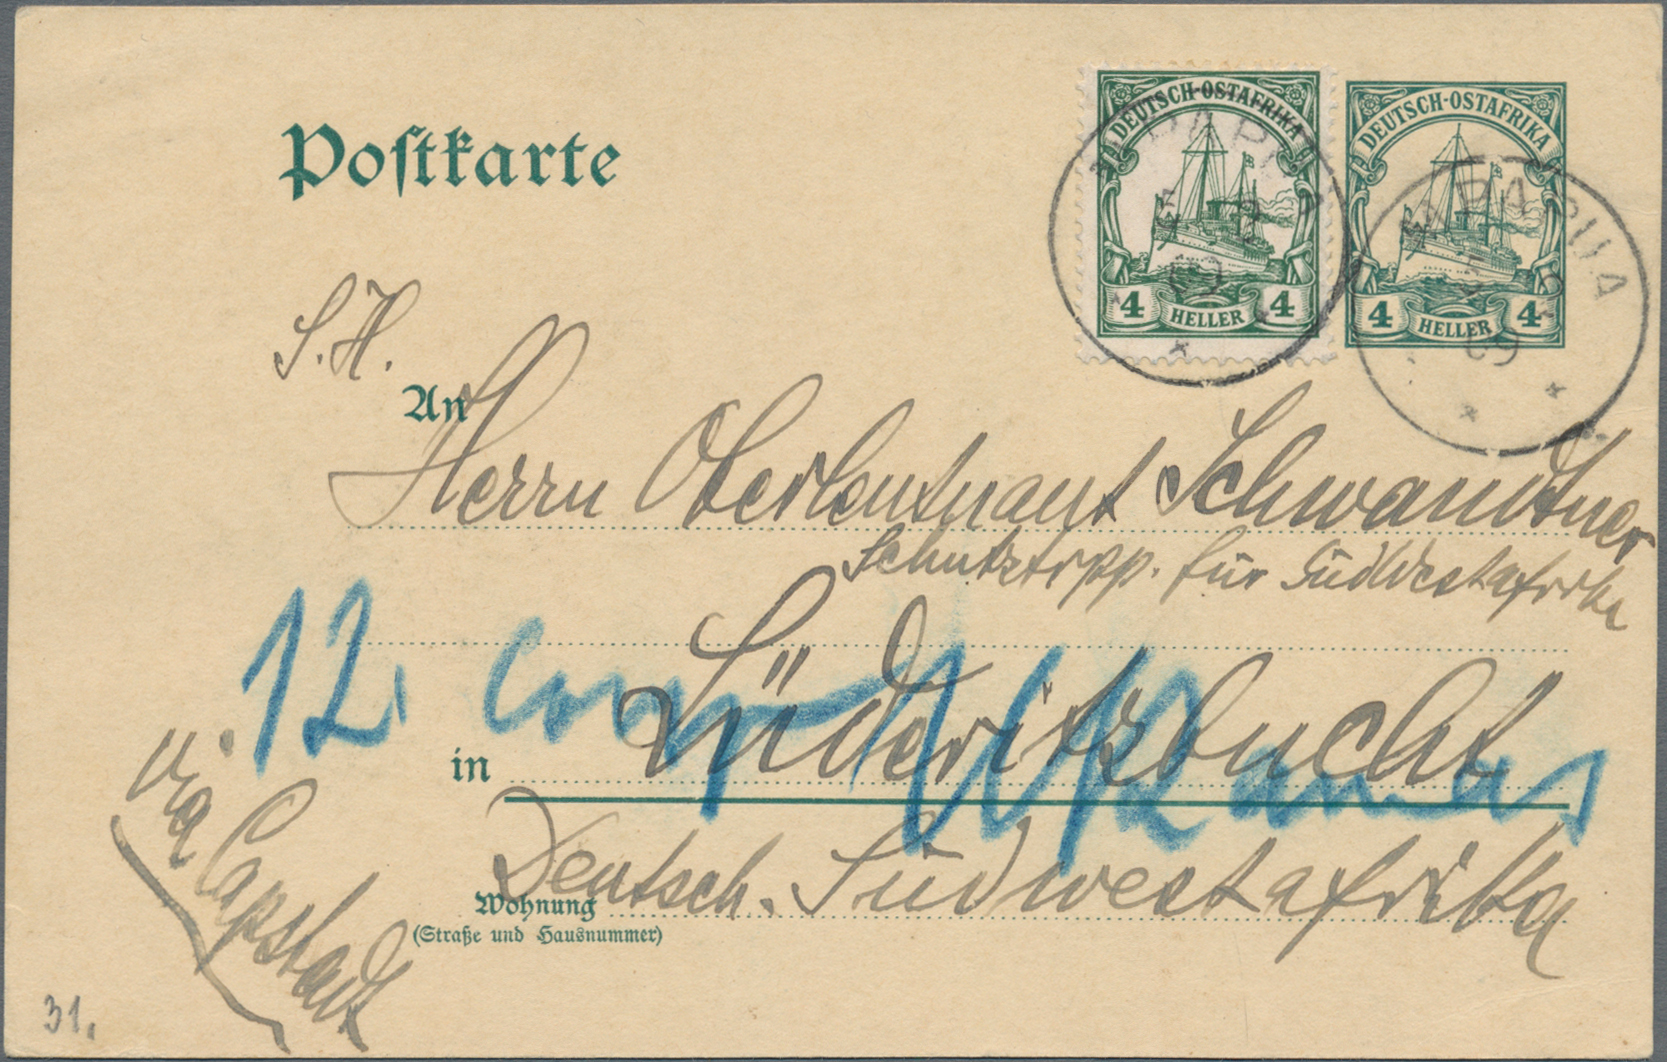 Postkarte
DEUTSCH-OSTAFRIKA
4 HELLER 4
DEUTSCH-OSTAFRIKA
4 HELLER 4
MPAPUA
09
S. H.
An
Herrn Oberleutnant Schwandtner
Schutztrpp. für Südwestafrika
12.
Lüderitzbucht
in
Deutsch. Südwestafrika
Wohnung
(Straße und Hausnummer)
via Capstadt
31.